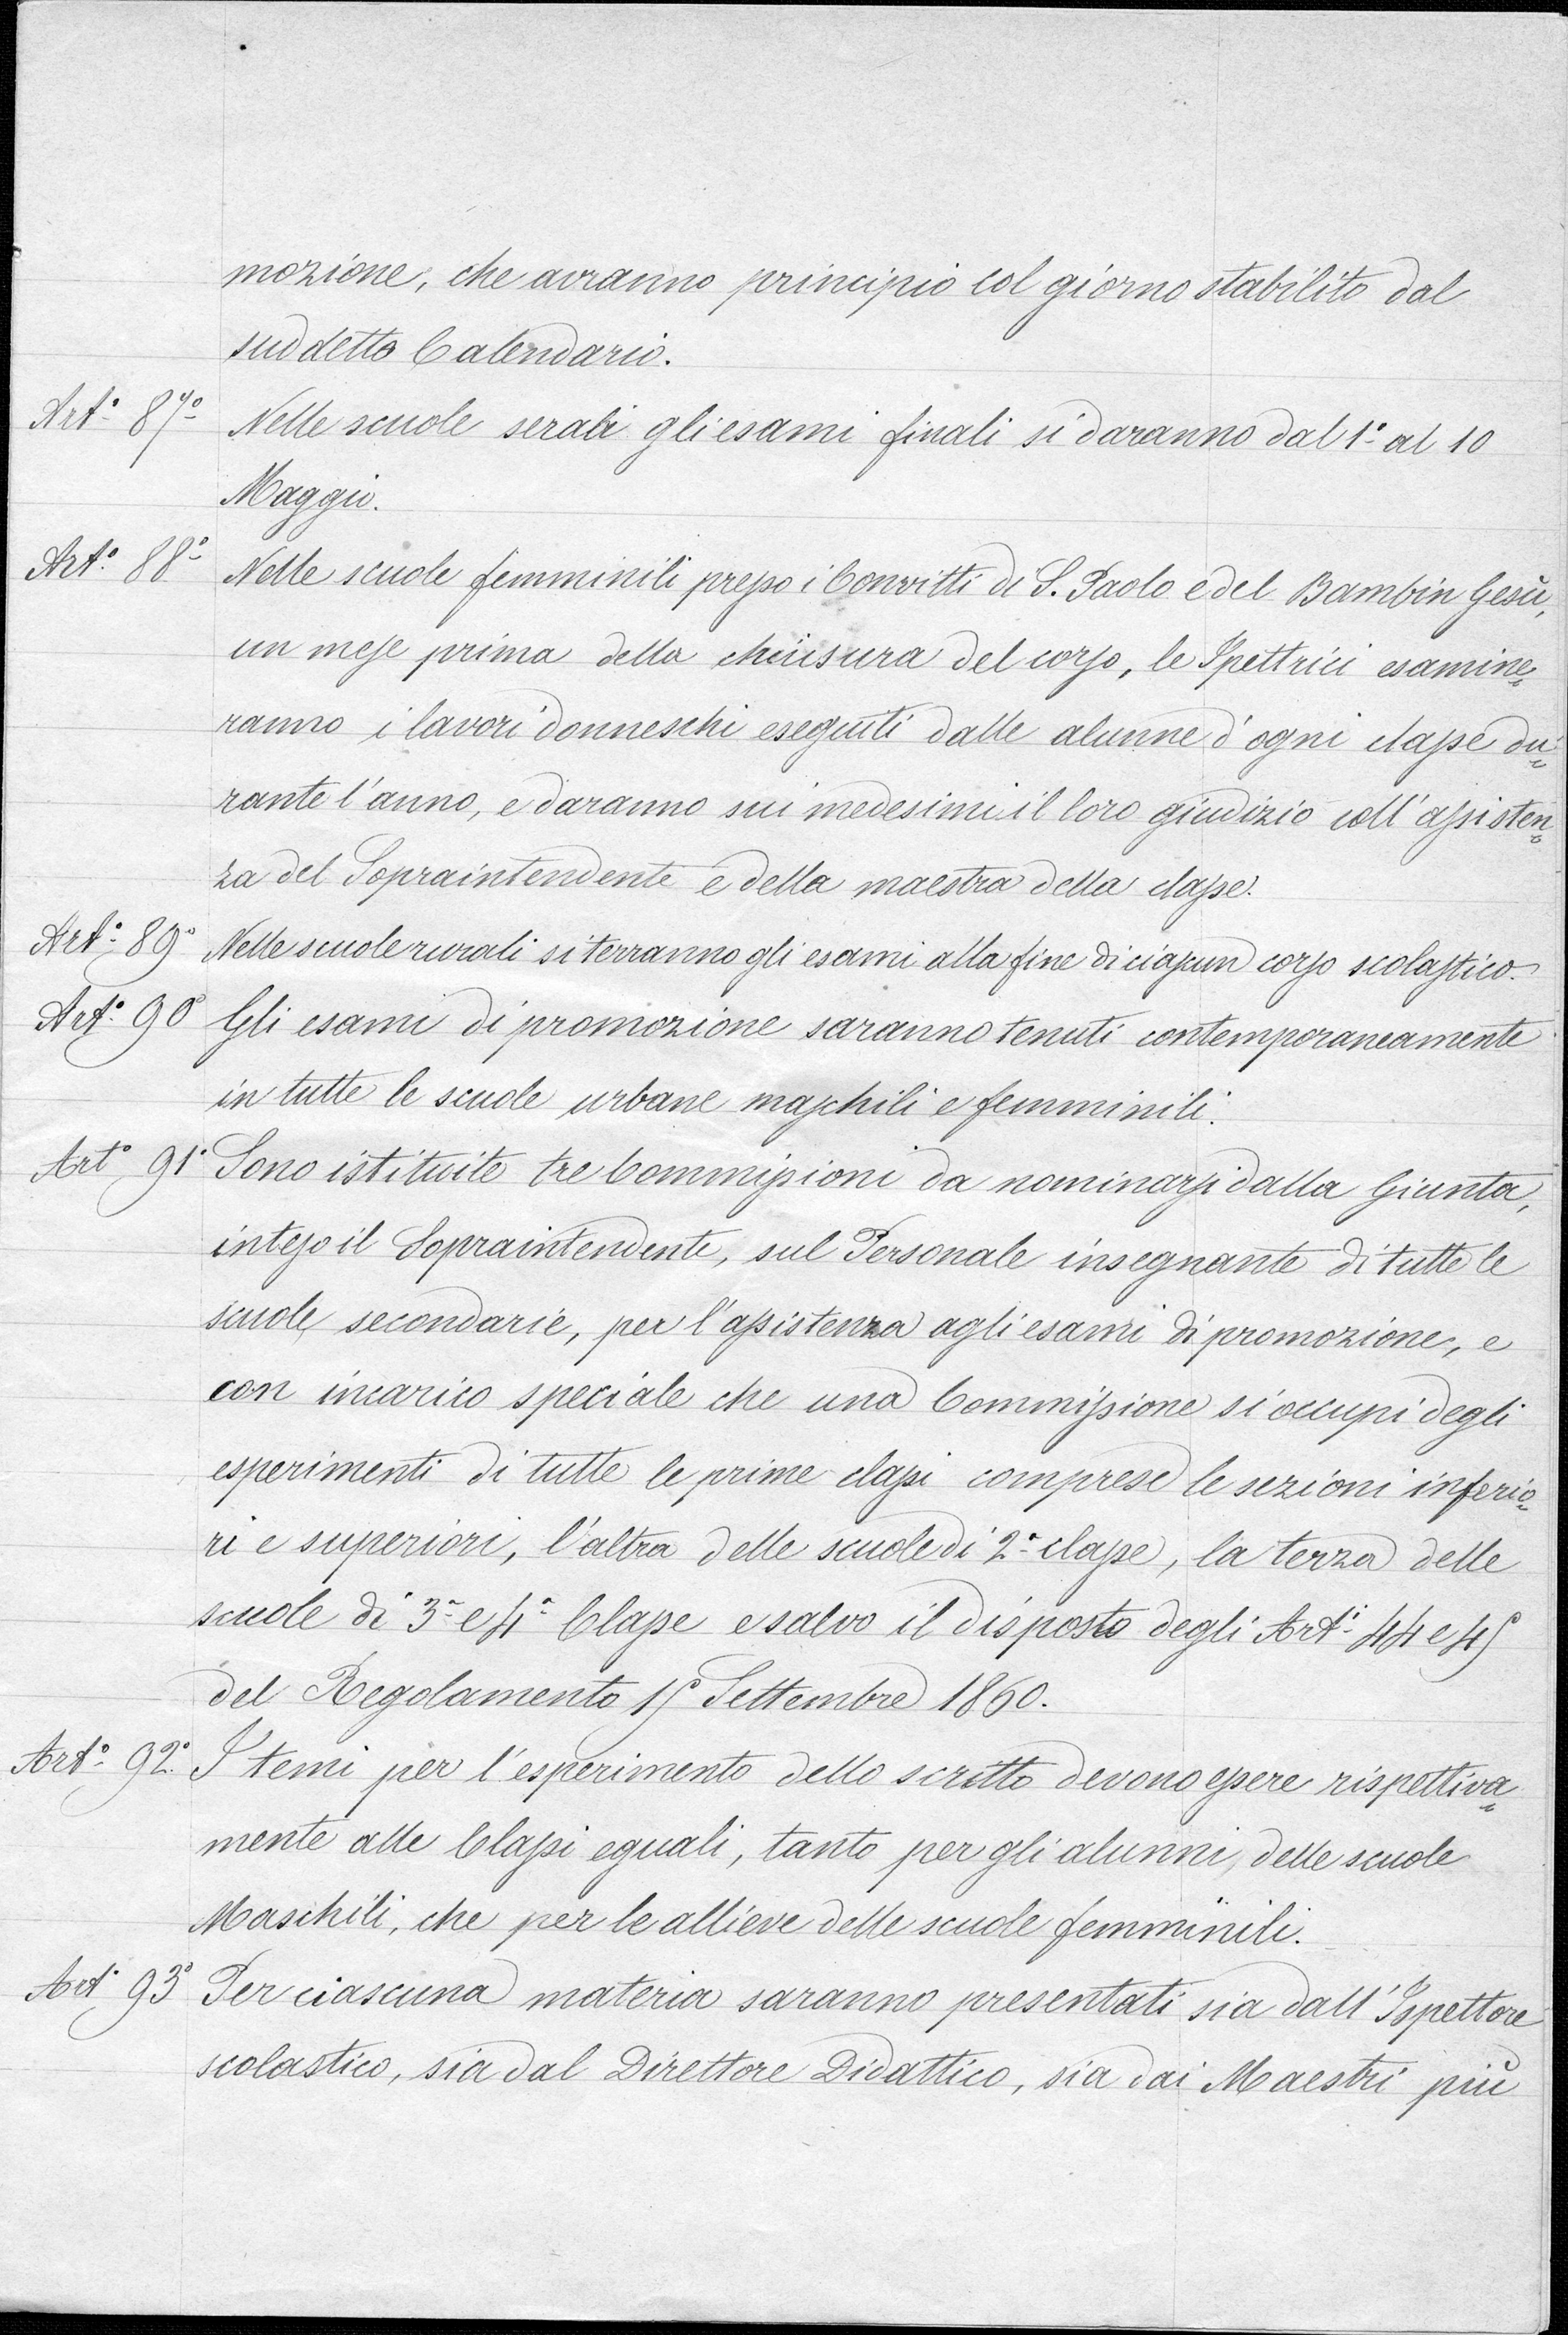 mozione, che avranno principio col giorno stabilito dal
suddetto Calendario.
Art.º 87º Nelle scuole serali gli esami finali si daranno dal 1º al 10
Maggio.
Art.º 88º Nelle scuole femminili presso i Convitti di S. Paolo e del Bambin Gesù,
un mese prima della chiusura del corso, le Ispettrici esamine-
ranno i lavori donneschi eseguiti dalle alunne d'ogni classe du-
rante l'anno, e daranno sui medesimi il loro giudizio coll'assisten-
za del Sopraintendente e della maestra della classe.
Art.º 89º Nelle scuole rurali si terranno gli esami alla fine di ciascun corso scolastico.
Art.º 90º Gli esami di promozione saranno tenuti contemporaneamente
in tutte le scuole urbane maschili e femminili.
Art.º 91º Sono istituite tre Commissioni da nominarsi dalla Giunta,
inteso il Sopraintendente, sul Personale insegnante di tutte le
scuole secondarie, per l'assistenza agli esami di promozione, e
con incarico speciale che una Commissione si occupi degli
esperimenti di tutte le prime classi comprese le sezioni inferio-
ri e superiori, l'altra delle scuole di 2ª classe, la terza delle
scuole di 3ª e 4ª Classe e salvo il disposto degli Art.i 44 e 45
del Regolamento 15 Settembre 1860.
Art.º 92º I temi per l'esperimento dello scritto devono essere rispettiva-
mente alle Classi eguali, tanto per gli alunni delle scuole
Maschili, che per le allieve delle scuole femminili.
Art.º 93º Per ciascuna materia saranno presentati sia dall'Ispettore
scolastico, sia dal Direttore Didattico, sia dai Maestri più